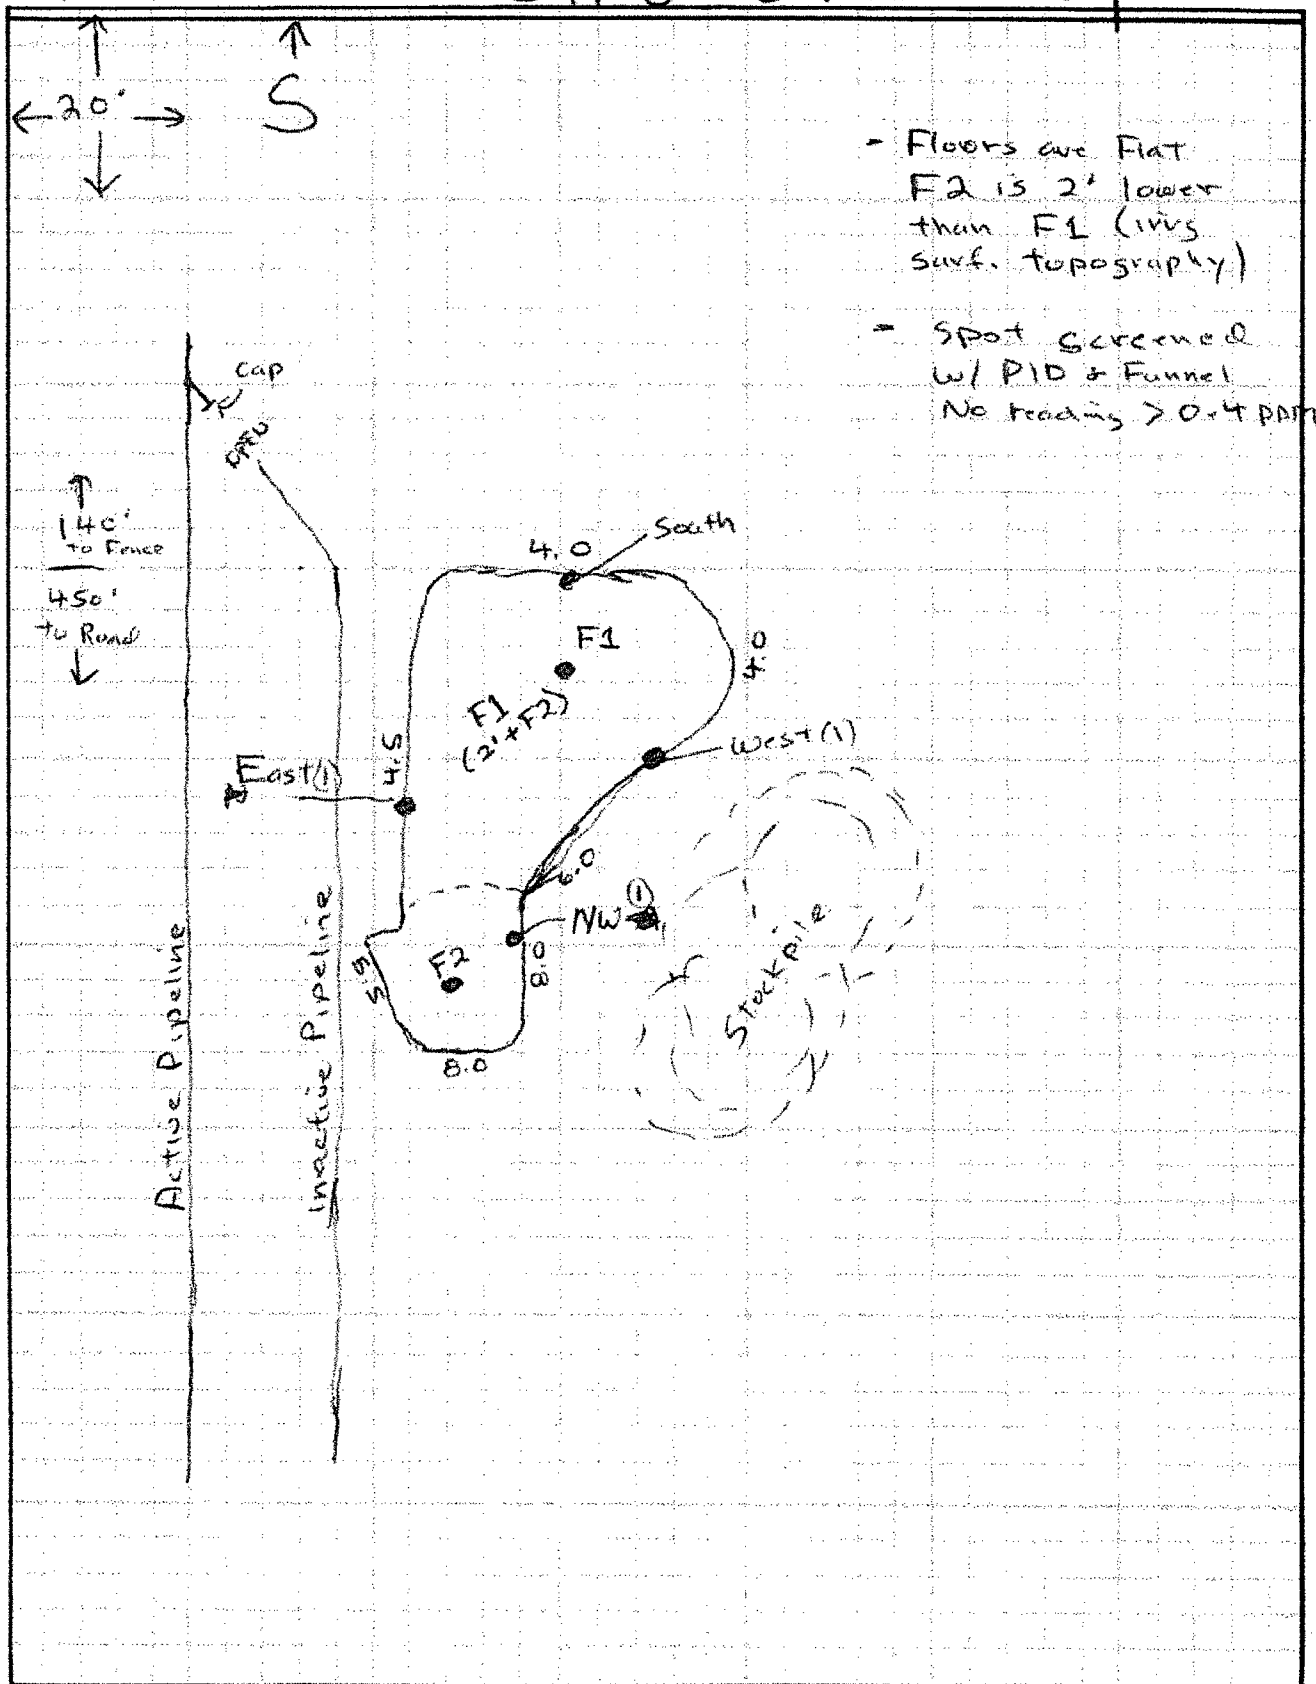 20'
S
- Floors are Flat
F2 is 2' lower
than F1 (irrg
surf. topography)
- Spot Screened
w/ PID & Funnel
No reading > 0.4 ppm
cap
140'
to Fence
450'
to Road
4.0
South
F1
4.0
F1
(2'+F2)
West(1)
4.5
East(1)
6.0
NW ①
F2
5.5
8.0
8.0
Stockpile
Active Pipeline
Inactive Pipeline